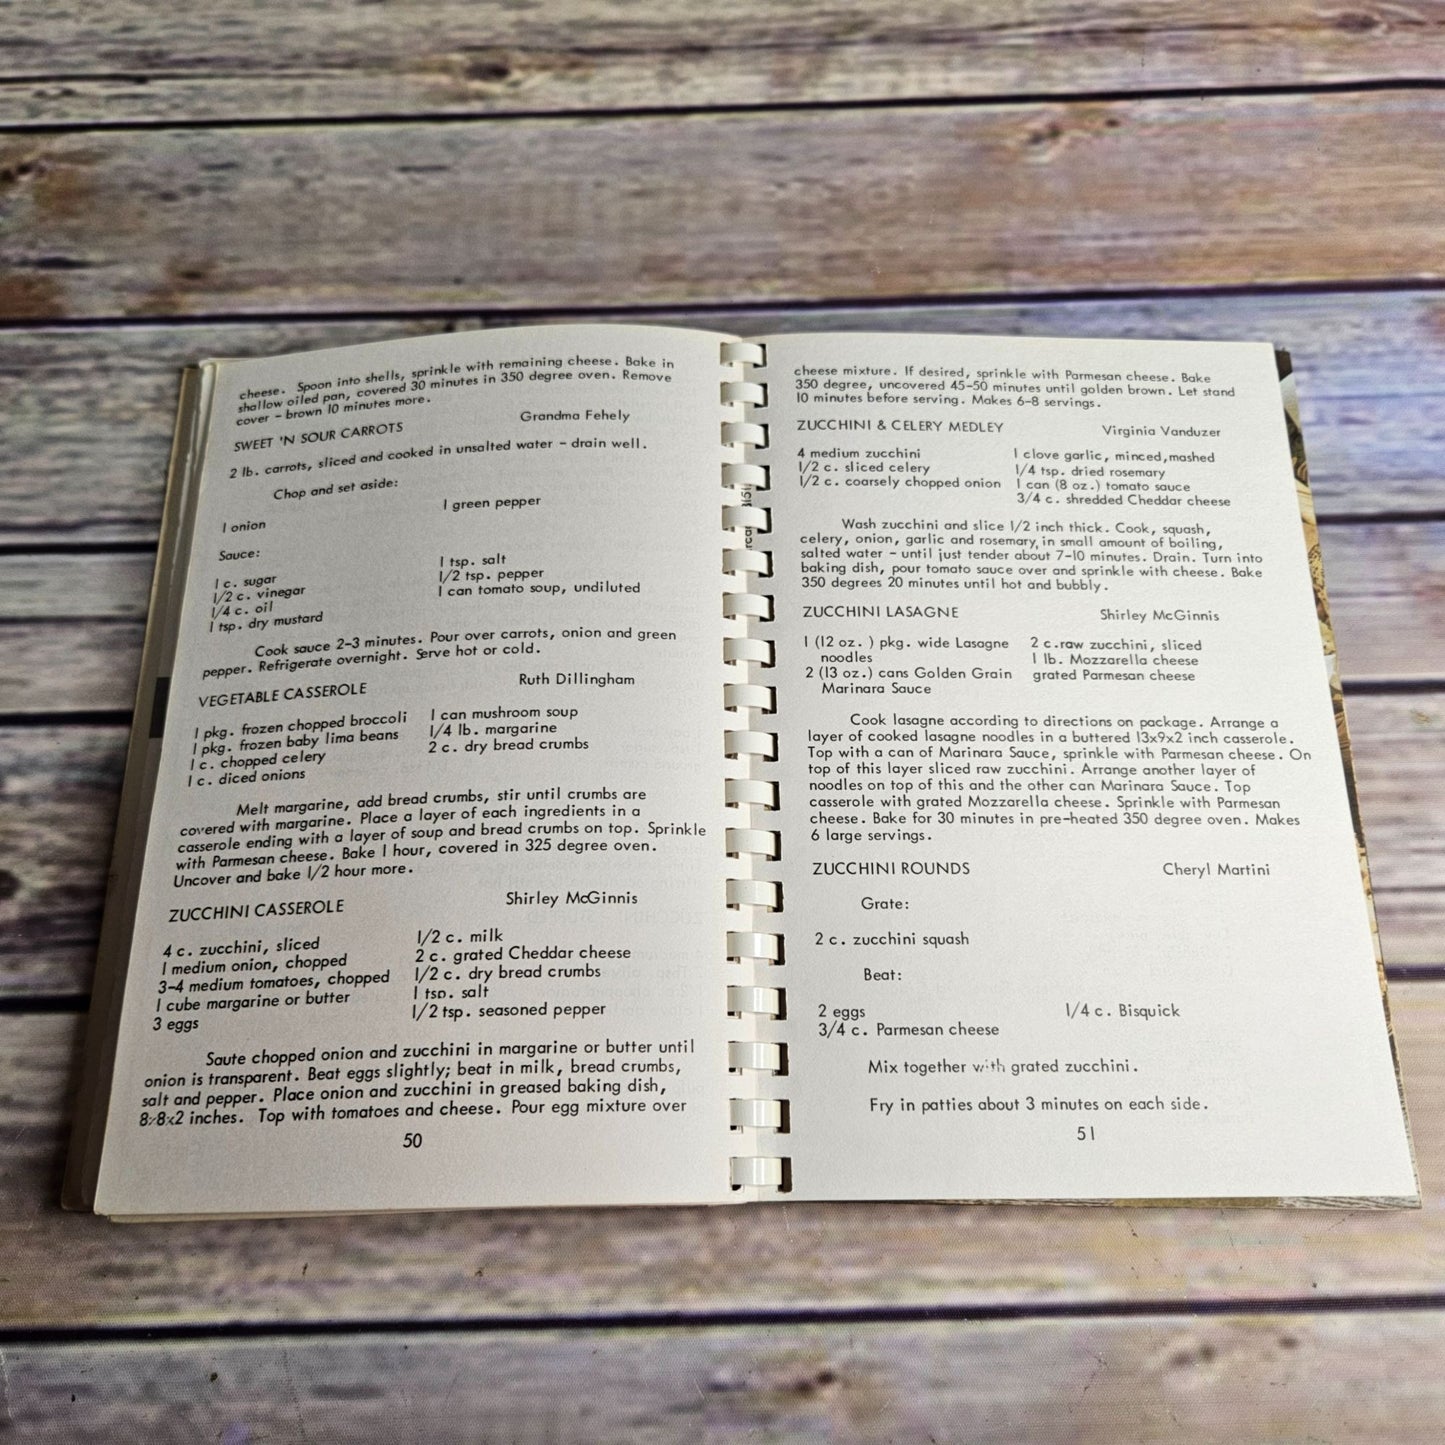 cheese. Spoon into shells, sprinkle with remaining cheese. Bake in
shallow oiled pan, covered 30 minutes in 350 degree oven. Remove
cover - brown 10 minutes more.
SWEET 'N SOUR CARROTS Grandma Fehely
2 lb. carrots, sliced and cooked in unsalted water - drain well.
Chop and set aside:
1 onion 1 green pepper
Sauce:
1 c. sugar 1 tsp. salt
1/2 c. vinegar 1/2 tsp. pepper
1/4 c. oil 1 can tomato soup, undiluted
1 tsp. dry mustard
Cook sauce 2-3 minutes. Pour over carrots, onion and green
pepper. Refrigerate overnight. Serve hot or cold.
VEGETABLE CASSEROLE Ruth Dillingham
1 pkg. frozen chopped broccoli 1 can mushroom soup
1 pkg. frozen baby lima beans 1/4 lb. margarine
1 c. chopped celery 2 c. dry bread crumbs
1 c. diced onions
Melt margarine, add bread crumbs, stir until crumbs are
covered with margarine. Place a layer of each ingredients in a
casserole ending with a layer of soup and bread crumbs on top. Sprinkle
with Parmesan cheese. Bake 1 hour, covered in 325 degree oven.
Uncover and bake 1/2 hour more.
ZUCCHINI CASSEROLE Shirley McGinnis
4 c. zucchini, sliced 1/2 c. milk
1 medium onion, chopped 2 c. grated Cheddar cheese
3-4 medium tomatoes, chopped 1/2 c. dry bread crumbs
1 cube margarine or butter 1 tsp. salt
3 eggs 1/2 tsp. seasoned pepper
Saute chopped onion and zucchini in margarine or butter until
onion is transparent. Beat eggs slightly; beat in milk, bread crumbs,
salt and pepper. Place onion and zucchini in greased baking dish,
8x8x2 inches. Top with tomatoes and cheese. Pour egg mixture over
50
cheese mixture. If desired, sprinkle with Parmesan cheese. Bake
350 degree, uncovered 45-50 minutes until golden brown. Let stand
10 minutes before serving. Makes 6-8 servings.
ZUCCHINI & CELERY MEDLEY Virginia Vanduzer
4 medium zucchini 1 clove garlic, minced,mashed
1/2 c. sliced celery 1/4 tsp. dried rosemary
1/2 c. coarsely chopped onion 1 can (8 oz.) tomato sauce
3/4 c. shredded Cheddar cheese
Wash zucchini and slice 1/2 inch thick. Cook, squash,
celery, onion, garlic and rosemary, in small amount of boiling,
salted water - until just tender about 7-10 minutes. Drain. Turn into
baking dish, pour tomato sauce over and sprinkle with cheese. Bake
350 degrees 20 minutes until hot and bubbly.
ZUCCHINI LASAGNE Shirley McGinnis
1 (12 oz. ) pkg. wide Lasagne 2 c.raw zucchini, sliced
noodles 1 lb. Mozzarella cheese
2 (13 oz.) cans Golden Grain grated Parmesan cheese
Marinara Sauce
Cook lasagne according to directions on package. Arrange a
layer of cooked lasagne noodles in a buttered 13x9x2 inch casserole.
Top with a can of Marinara Sauce, sprinkle with Parmesan cheese. On
top of this layer sliced raw zucchini. Arrange another layer of
noodles on top of this and the other can Marinara Sauce. Top
casserole with grated Mozzarella cheese. Sprinkle with Parmesan
cheese. Bake for 30 minutes in pre-heated 350 degree oven. Makes
6 large servings.
ZUCCHINI ROUNDS Cheryl Martini
Grate:
2 c. zucchini squash
Beat:
2 eggs 1/4 c. Bisquick
3/4 c. Parmesan cheese
Mix together with grated zucchini.
Fry in patties about 3 minutes on each side.
51